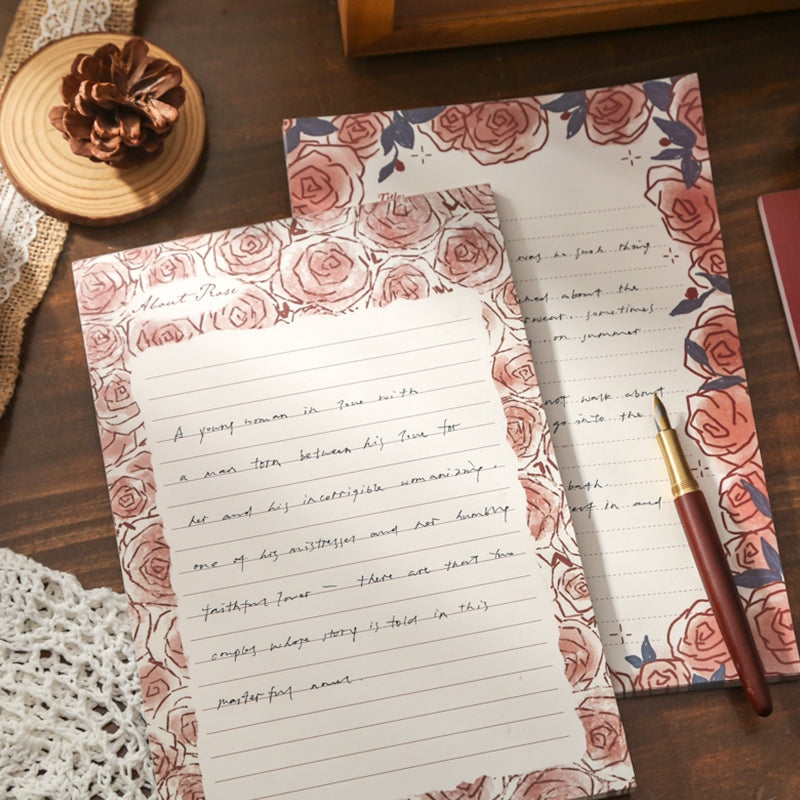 About Rose
A young woman in love with
a man torn between his love for
her and his incorrigible womanizing.
one of his mistresses and her humbly
faithful lover — these are that two
couples whose story is told in this
masterful novel.
Title
was no such thing
about the
sometimes
on summer
not walk about
go into the
bath
in and